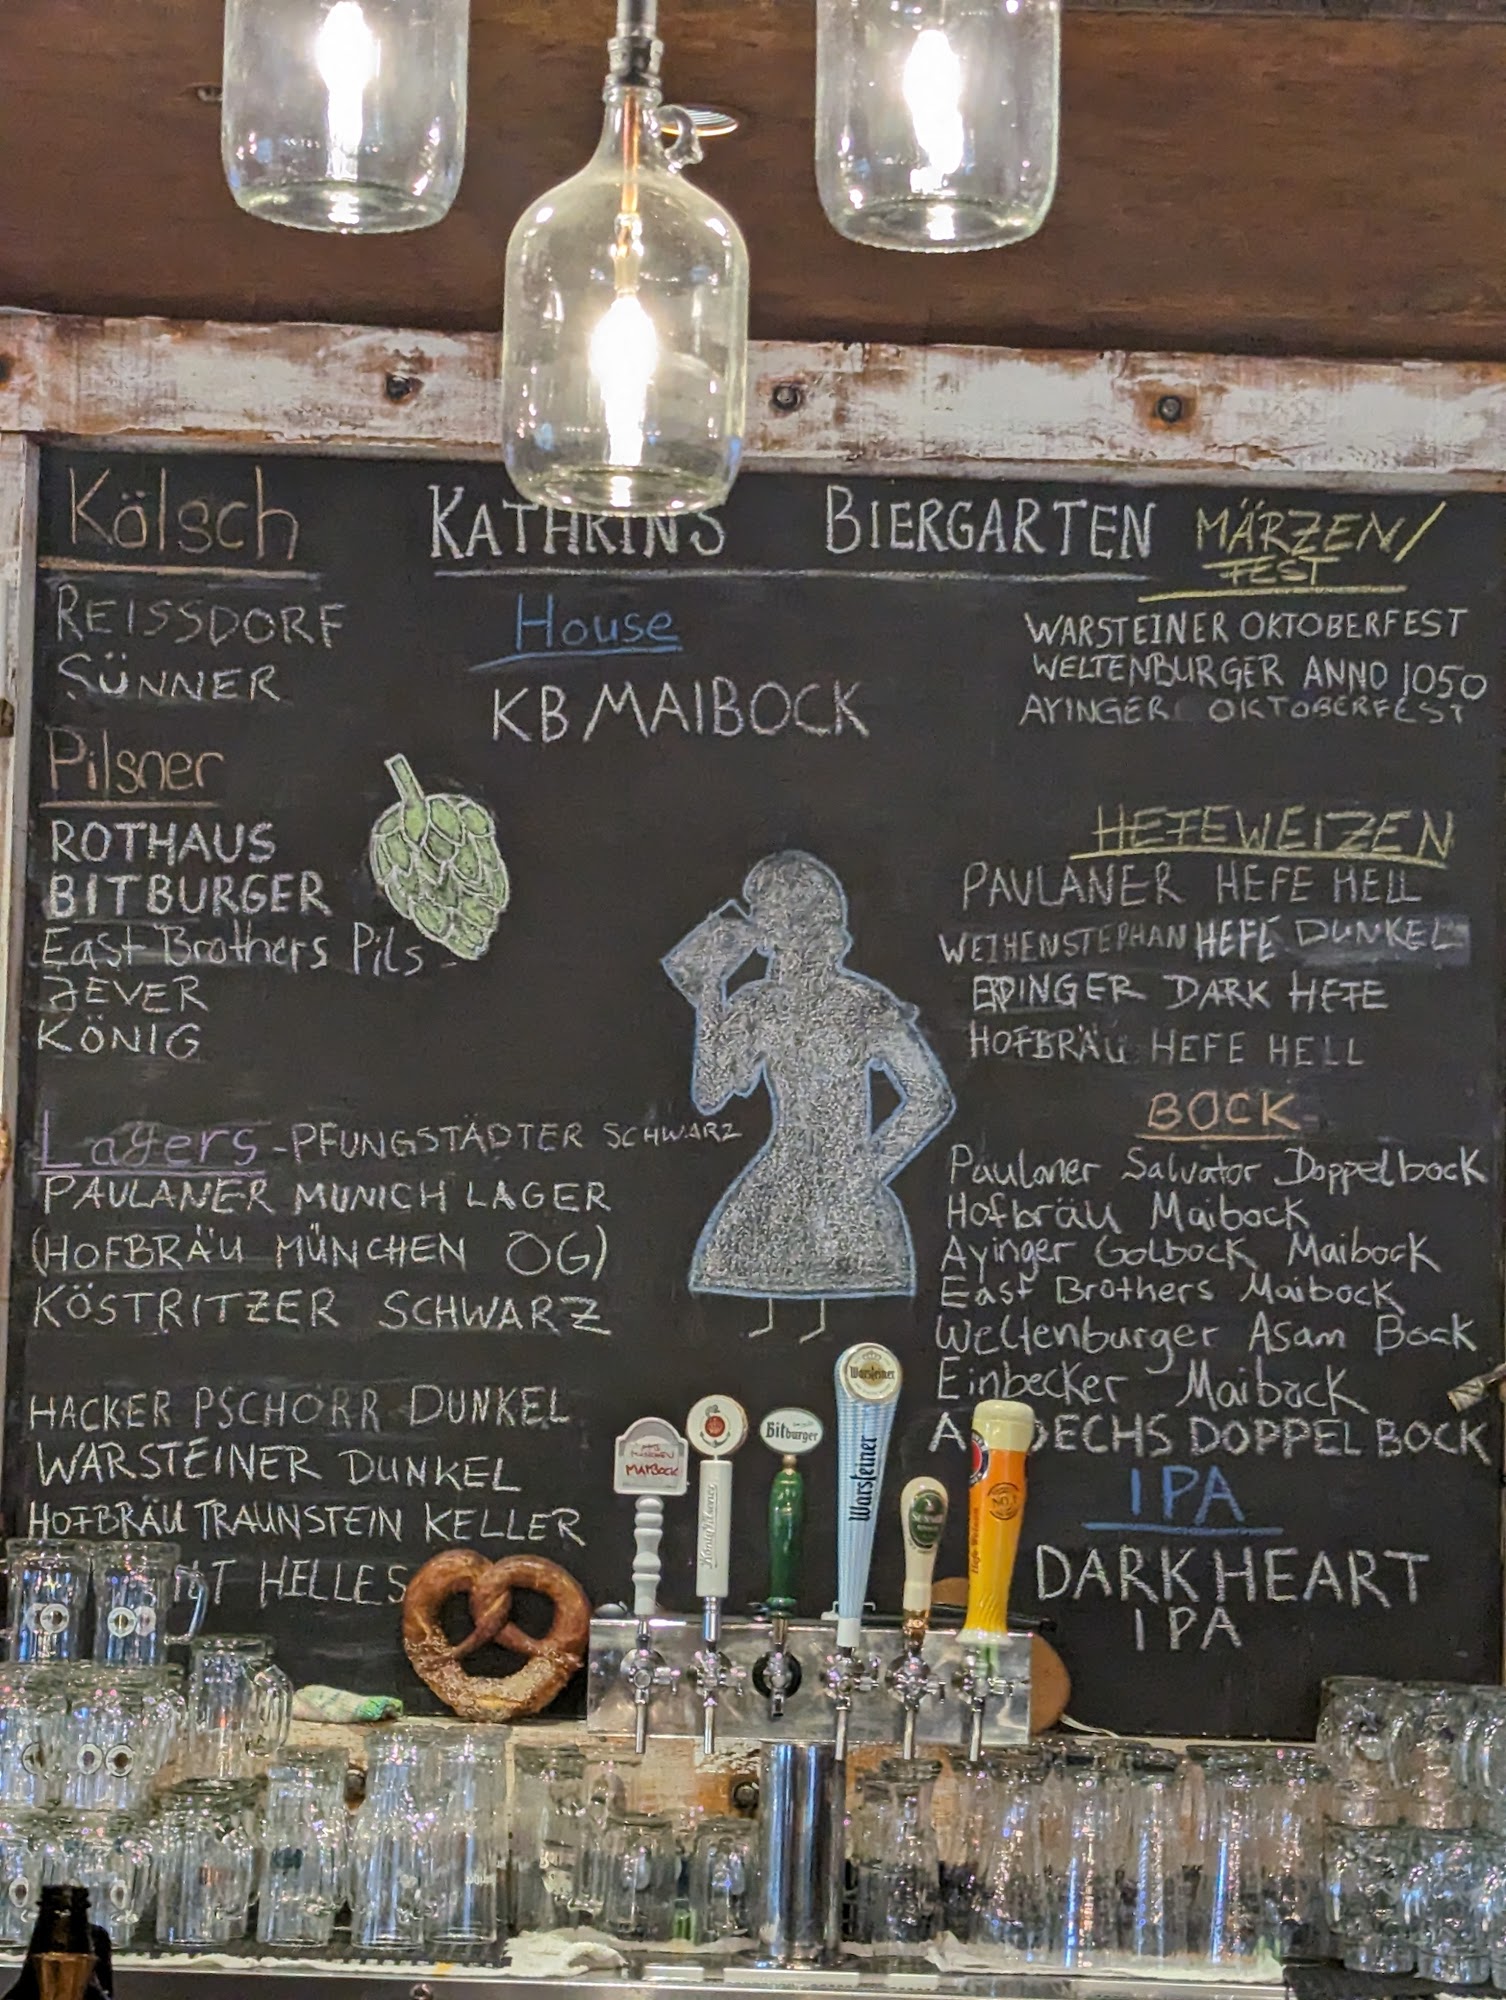 Kölsch
REISSDORF
SÜNNER
Pilsner
ROTHAUS
BITBURGER
East Brothers Pils
JEVER
KÖNIG
Lagers - PFUNGSTÄDTER SCHWARZ
PAULANER MUNICH LAGER
(HOFBRÄU MÜNCHEN OG)
KÖSTRITZER SCHWARZ
HACKER PSCHORR DUNKEL
WARSTEINER DUNKEL
HOFBRÄU TRAUNSTEIN KELLER
HELLES
KATHRINS BIERGARTEN
House
KB MAIBOCK
MÄRZEN/
FEST
WARSTEINER OKTOBERFEST
WELTENBURGER ANNO 1050
AYINGER OKTOBERFEST
HEFEWEIZEN
PAULANER HEFE HELL
WEIHENSTEPHAN HEFE DUNKEL
ERDINGER DARK HEFE
HOFBRÄU HEFE HELL
BOCK
Paulaner Salvator Doppelbock
Hofbräu Maibock
Ayinger Golbock Maibock
East Brothers Maibock
Weltenburger Asam Bock
Einbecker Maibock
DECHS DOPPEL BOCK
IPA
DARK HEART
IPA
MAIBOCK
König Pilsener
Bitburger
Warsteiner
Warsteiner